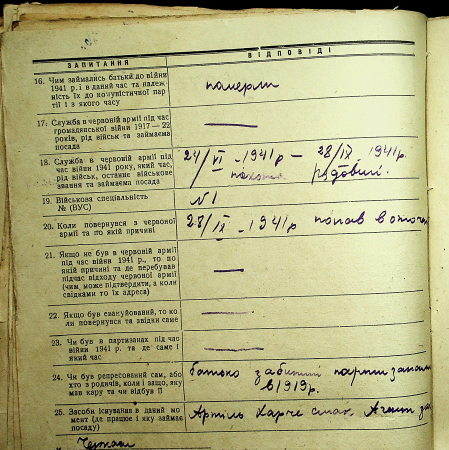 ЗАПИТАННЯ
ВІДПОВІДІ
16. Чим займались батьки до війни
1941 р. і в даний час та належ-
ність їх до комуністичної пар-
тії і з якого часу
померли
17. Служба в червоній армії під час
громадянської війни 1917—22
років, рід військ та займаєма
посада
—
18. Служба в червоній армії під
час війни 1941 року, який час,
рід військ, останнє військове
звання та займаєма посада
24/VI -1941р — 28/IX 1941р.
піхота рядовий.
19. Військова спеціяльність
№ (ВУС)
№1
20. Коли повернувся з червоної
армії та по якій причині
28/IX - 1941р попав в оточен
21. Якщо не був в червоній армії
під час війни 1941 р., то по
якій причині та де перебував
підчас відходу червоної армії
(чим, може підтвердити, а коли
свідками то їх адреса)
—
22. Якщо був евакуйований, то ко
ли повернувся та звідки саме
—
23. Чи був в партизанах під час
війни 1941 р. та де саме і
який час
—
24. Чи був репресований сам, або
хто з родичів, коли і защо, яку
мав кару та чи відбув її
батько
в 1919р.
25. Засоби існування в даний мо
мент (де працює і яку займає
посаду)
Артіль Харчо смак. Агент